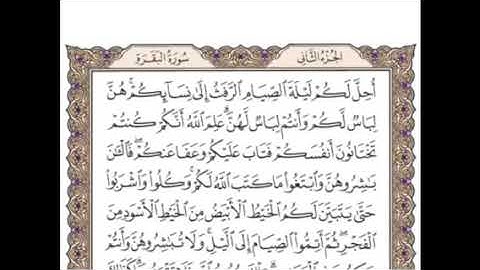 الجزء الثاني
سورة البقرة
أُحِلَّ لَكُمْ لَيْلَةَ ٱلصِّيَامِ ٱلرَّفَثُ إِلَىٰ نِسَآئِكُمْ ۚ هُنَّ
لِبَاسٌ لَّكُمْ وَأَنتُمْ لِبَاسٌ لَّهُنَّ ۗ عَلِمَ ٱللَّهُ أَنَّكُمْ كُنتُمْ
تَخْتَانُونَ أَنفُسَكُمْ فَتَابَ عَلَيْكُمْ وَعَفَا عَنكُمْ ۖ فَٱلْـَٰٔنَ
بَـٰشِرُوهُنَّ وَٱبْتَغُوا۟ مَا كَتَبَ ٱللَّهُ لَكُمْ ۚ وَكُلُوا۟ وَٱشْرَبُوا۟
حَتَّىٰ يَتَبَيَّنَ لَكُمُ ٱلْخَيْطُ ٱلْأَبْيَضُ مِنَ ٱلْخَيْطِ ٱلْأَسْوَدِ مِنَ
ٱلْفَجْرِ ۖ ثُمَّ أَتِمُّوا۟ ٱلصِّيَامَ إِلَى ٱلَّيْلِ ۚ وَلَا تُبَـٰشِرُوهُنَّ وَأَنتُمْ